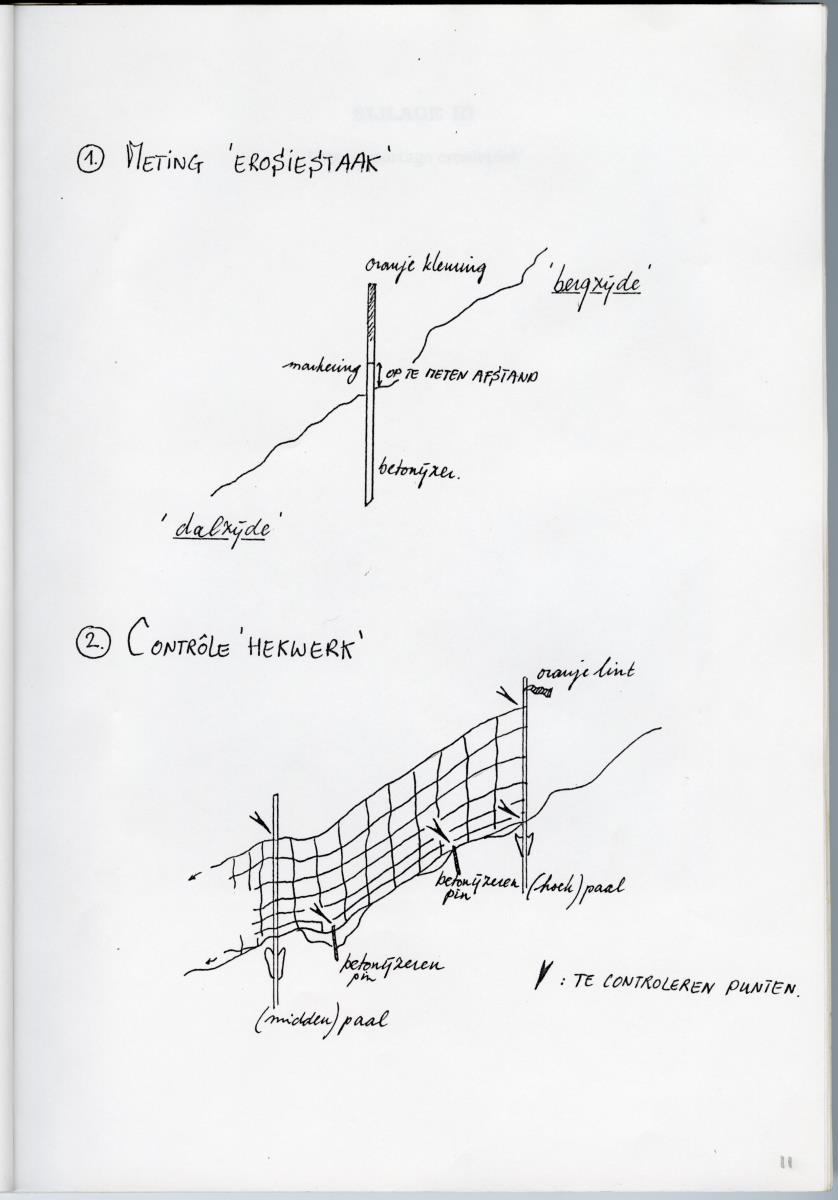 1. METING 'EROSIESTAAK'
oranje kleuring
'bergzijde'
markering
OP TE METEN AFSTAND
betonijzer.
'dalzijde'
2. CONTRÔLE 'HEKWERK'
oranje lint
betonijzeren
pin
(hoek) paal
betonijzeren
pin
: TE CONTROLEREN PUNTEN.
(midden) paal
11